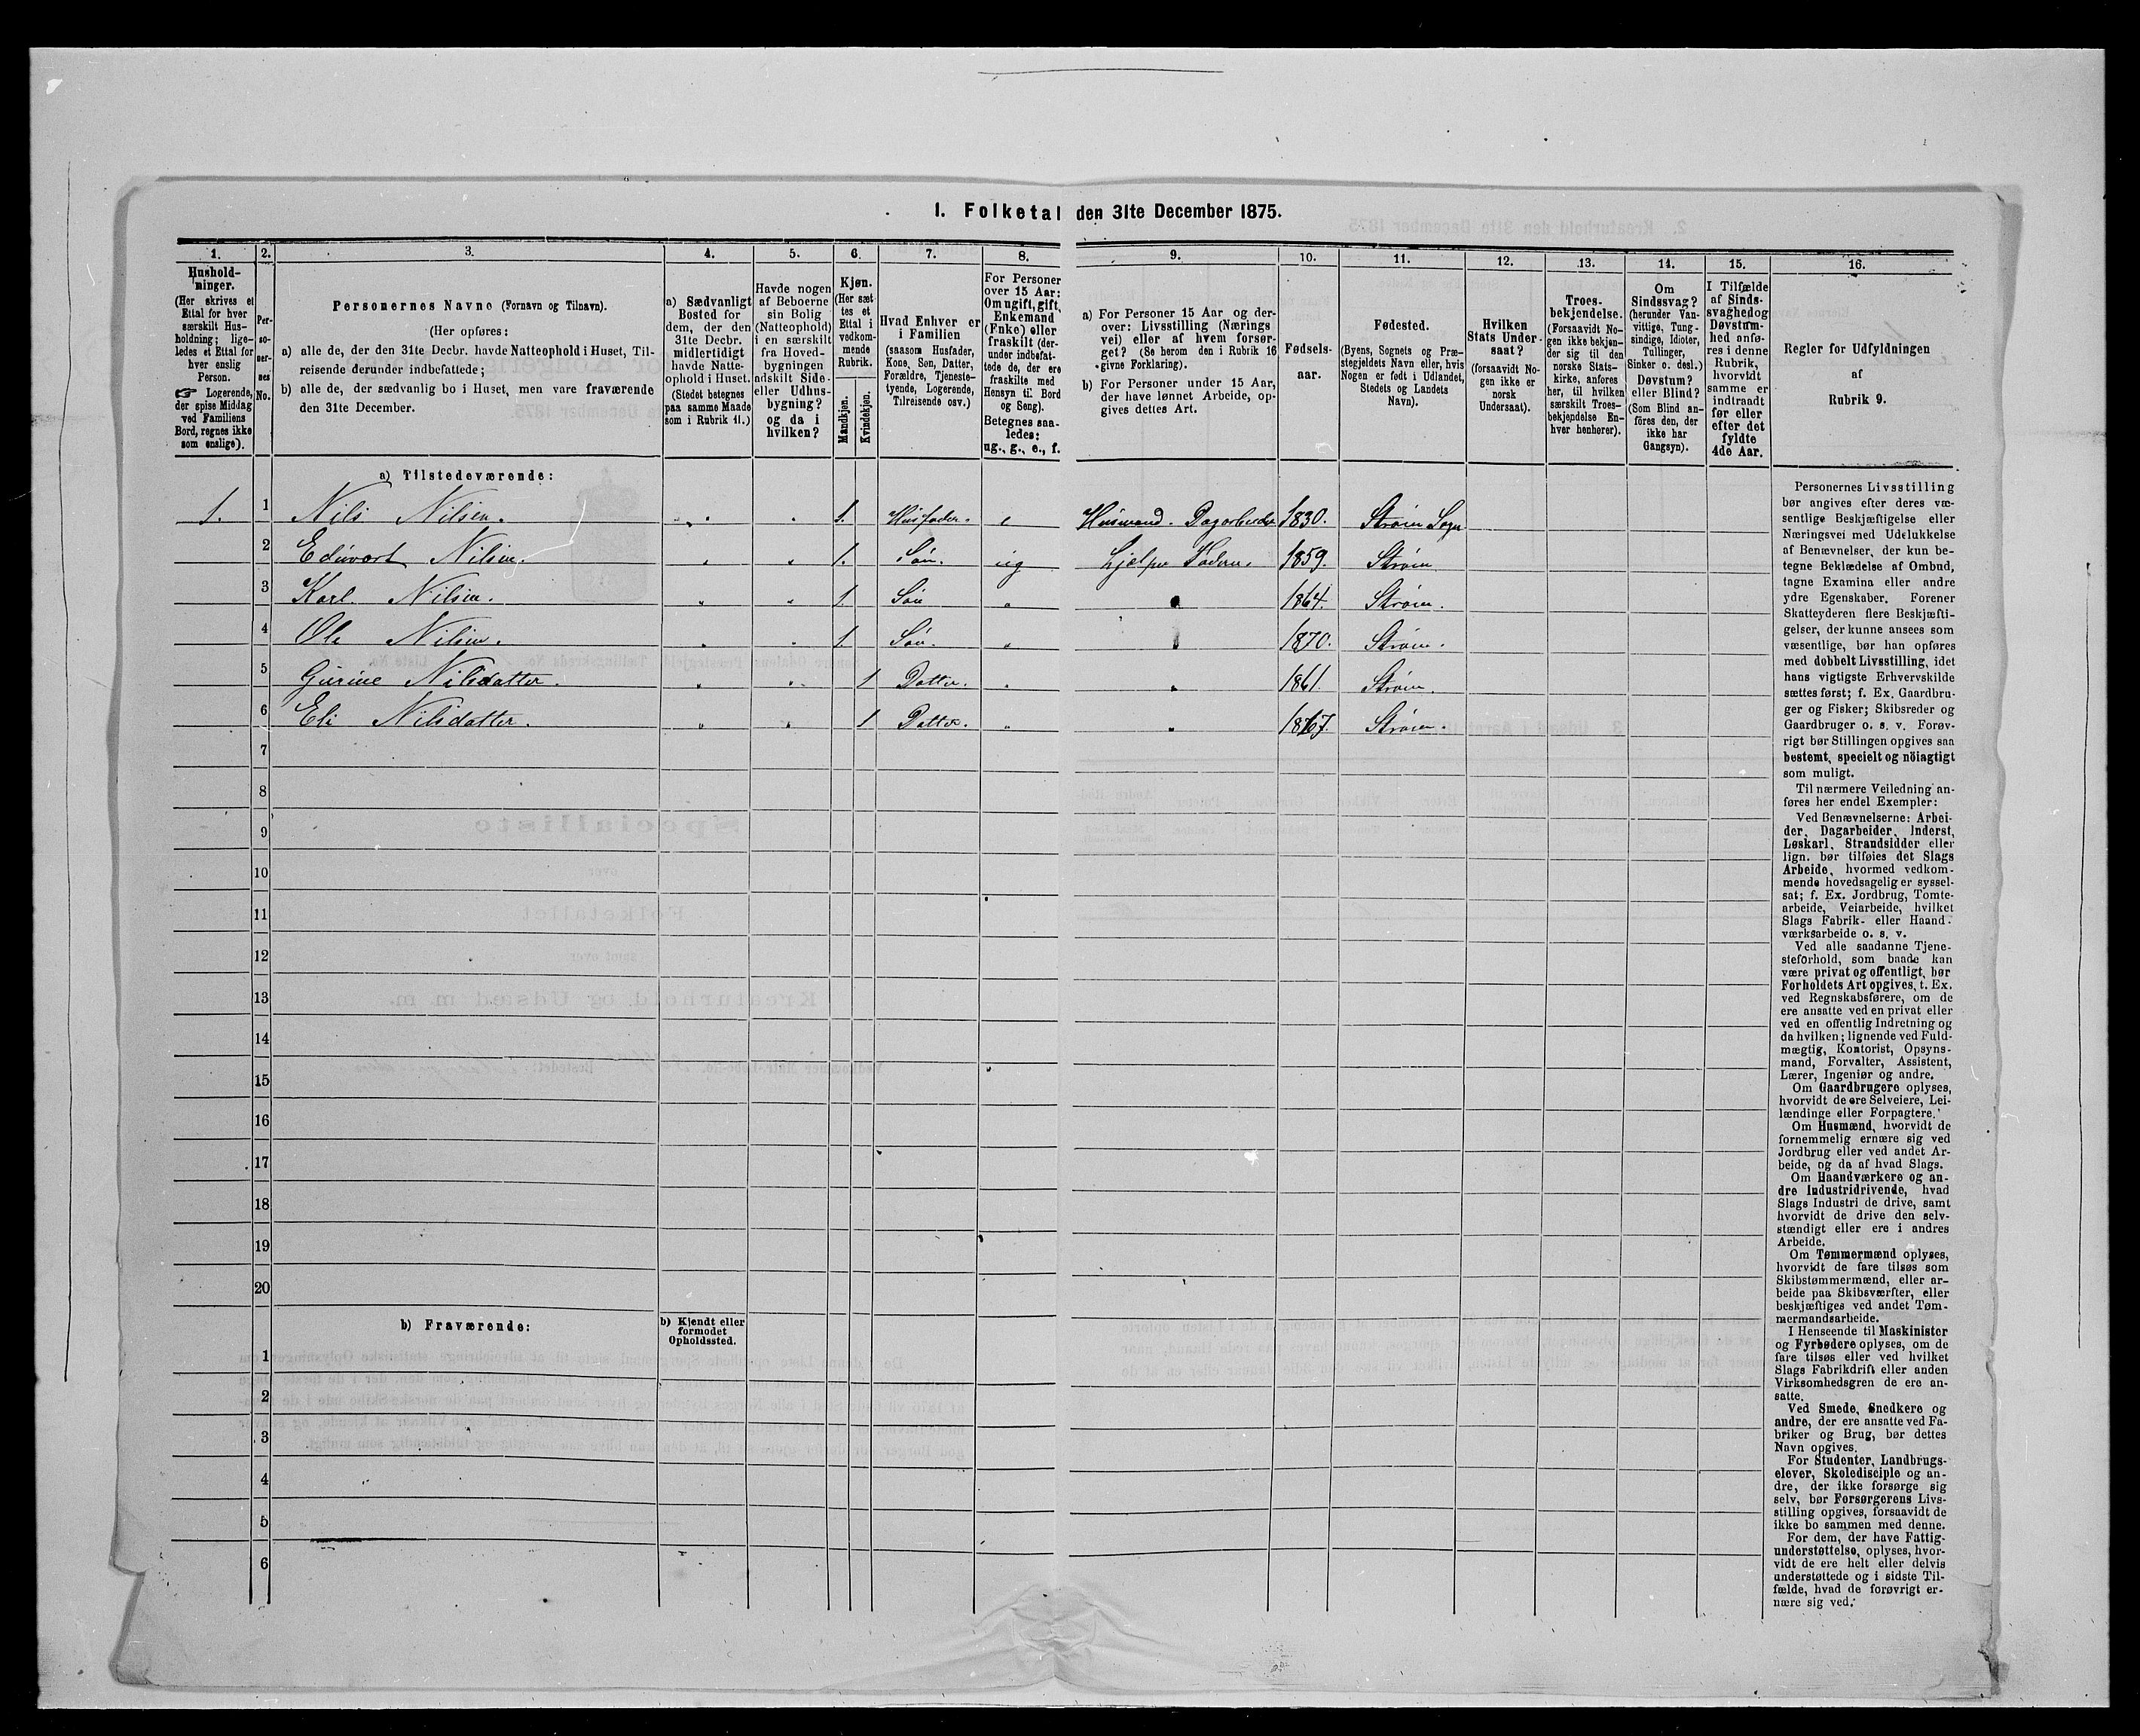 I. Folketal den 31te December 1875.
1. 2. 3. 4. 5. 6. 7. 8. 9. 10. 11. 12. 13. 14. 15. 16.
Hushold-
ninger.
(Her skrives et
Ettal for hver
særskilt Hus-
holdning; lige-
ledes et Ettal for
hver enslig
Person.
☞ Logerende,
der spise Middag
ved Familiens
Bord, regnes ikke
som enslige).
Per-
so-
ner-
nes
No.
Personernes Navne (Fornavn og Tilnavn).
(Her opføres:
a) alle de, der den 31te Decbr. havde Natteophold i Huset, Til-
reisende derunder indbefattede;
b) alle de, der sædvanlig bo i Huset, men vare fraværende
den 31te December.
a) Sædvanligt
Bosted for
dem, der den
31te Decbr.
midlertidigt
havde Natte-
ophold i Huset.
(Stedet betegnes
paa samme Maade
som i Rubrik 11.)
Havde nogen
af Beboerne
sin Bolig
(Natteophold)
i en særskilt
fra Hoved-
bygningen
adskilt Side-
eller Udhus-
bygning?
og da i
hvilken?
Kjøn.
(Her sæt-
tes et
Ettal i
vedkom-
mende
Rubrik.
Mandkjøn.
Kvindekjøn.
Hvad Enhver er
i Familien
(saasom Husfader,
Kone, Søn, Datter,
Forældre, Tjeneste-
tyende, Logerende,
Tilreisende osv.)
For Personer
over 15 Aar:
Om ugift, gift,
Enkemand
(Enke) eller
fraskilt (der-
under indbefat-
tede de, der ere
fraskilte med
Hensyn til Bord
og Seng).
Betegnes saa-
ledes:
ug., g., e., f.
a) For Personer 15 Aar og der-
over: Livsstilling (Nærings
vei) eller af hvem forsør-
get? (Se herom den i Rubrik 16
givne Forklaring).
b) For Personer under 15 Aar,
der have lønnet Arbeide, op-
gives dettes Art.
Fødsels-
aar.
Fødested.
(Byens, Sognets og Præ-
stegjeldets Navn eller, hvis
Nogen er født i Udlandet,
Stedets og Landets
Navn).
Hvilken
Stats Under-
saat?
(forsaavidt No-
gen ikke er
norsk
Undersaat).
Troes-
bekjendelse.
(Forsaavidt No-
gen ikke bekjen-
der sig til den
norske Stats-
kirke, anføres
her, til hvilken
særskilt Troes-
bekjendelse En-
hver henhører).
Om
Sindssvag?
(herunder Van-
vittige, Tung-
sindige, Idioter,
Tullinger,
Sinker o. desl.)
Døvstum?
eller Blind?
(Som Blind an-
føres den, der
ikke har
Gangsyn).
I Tilfælde
af Sinds-
svaghed og
Døvstum-
hed anfø-
res i denne
Rubrik,
hvorvidt
samme er
indtraadt
før eller
efter det
fyldte
4de Aar.
Regler for Udfyldningen
af
Rubrik 9.
a) Tilstedeværende:
1. 1 Nils Nilsen. „ „ 1. Husfader. e Husmand. Dagarbeider 1830. Strøm Sogn
2 Eduvart Nilsen. „ „ 1. Søn. ug hjelper Faderen. 1859. Strøm
3 Karl. Nilsen. „ „ 1. Søn „ „ 1864. Strøm.
4 Ole Nilsen. „ „ 1. Søn. „ „ 1870. Strøm.
5 Gurine Nilsdatter. „ „ 1 Datter. „ „ 1861. Strøm.
6 Eli Nilsdatter. „ „ 1 Datter. „ „ 1867. Strøm.
7
8
9
10
11
12
13
14
15
16
17
18
19
20
b) Fraværende:
b) Kjendt eller
formodet
Opholdssted.
1
2
3
4
5
6
Personernes Livsstilling
bør angives efter deres væ-
sentlige Beskjæftigelse eller
Næringsvei med Udelukkelse
af Benævnelser, der kun be-
tegne Beklædelse af Ombud,
tagne Examina eller andre
ydre Egenskaber. Forener
Skatteyderen flere Beskjæfti-
gelser, der kunne ansees som
væsentlige, bør han opføres
med dobbelt Livsstilling, idet
hans vigtigste Erhvervskilde
sættes først; f. Ex. Gaardbru-
ger og Fisker; Skibsreder og
Gaardbruger o. s. v. Forøv-
rigt bør Stillingen opgives saa
bestemt, specielt og nöiagtigt
som muligt.
Til nærmere Veiledning an-
føres her endel Exempler:
Ved Benævnelserne: Arbei-
der, Dagarbeider, Inderst,
Løskarl, Strandsidder eller
lign. bør tilføies det Slags
Arbeide, hvormed vedkom-
mende hovedsagelig er syssel-
sat; f. Ex. Jordbrug, Tomte-
arbeide, Veiarbeide, hvilket
Slags Fabrik- eller Haand-
værksarbeide o. s. v.
Ved alle saadanne Tjene-
steforhold, som baade kan
være privat og offentligt, bør
Forholdets Art opgives, t. Ex.
ved Regnskabsførere, om de
ere ansatte ved en privat eller
ved en offentlig Indretning og
da hvilken; lignende ved Fuld-
mægtig, Kontorist, Opsyns-
mand, Forvalter, Assistent,
Lærer, Ingeniør og andre.
Om Gaardbrugere oplyses,
hvorvidt de ere Selveiere, Lei-
lændinge eller Forpagtere.
Om Husmænd, hvorvidt de
fornemmelig ernære sig ved
Jordbrug eller ved andet Ar-
beide, og da af hvad Slags.
Om Haandværkere og an-
dre Industridrivende, hvad
Slags Industri de drive, samt
hvorvidt de drive den selv-
stændigt eller ere i andres
Arbeide.
Om Tømmermænd oplyses,
hvorvidt de fare tilsøs som
Skibstømmermænd, eller ar-
beide paa Skibsværfter, eller
beskjæftiges ved andet Tøm-
mermandsarbeide.
I Henseende til Maskinister
og Fyrbødere oplyses, om de
fare tilsøs eller ved hvilket
Slags Fabrikdrift eller anden
Virksomhedsgren de ere an-
satte.
Ved Smede, Snedkere og
andre, der ere ansatte ved Fa-
briker og Brug, bør dettes
Navn opgives.
For Studenter, Landbrugs-
elever, Skoledisciple og an-
dre, der ikke forsørge sig
selv, bør Forsørgerens Livs-
stilling opgives, forsaavidt de
ikke bo sammen med denne.
For dem, der have Fattig-
understøttelse, oplyses, hvor-
vidt de ere helt eller delvis
understøttede og i sidste Til-
fælde, hvad de forøvrigt er-
nære sig ved.